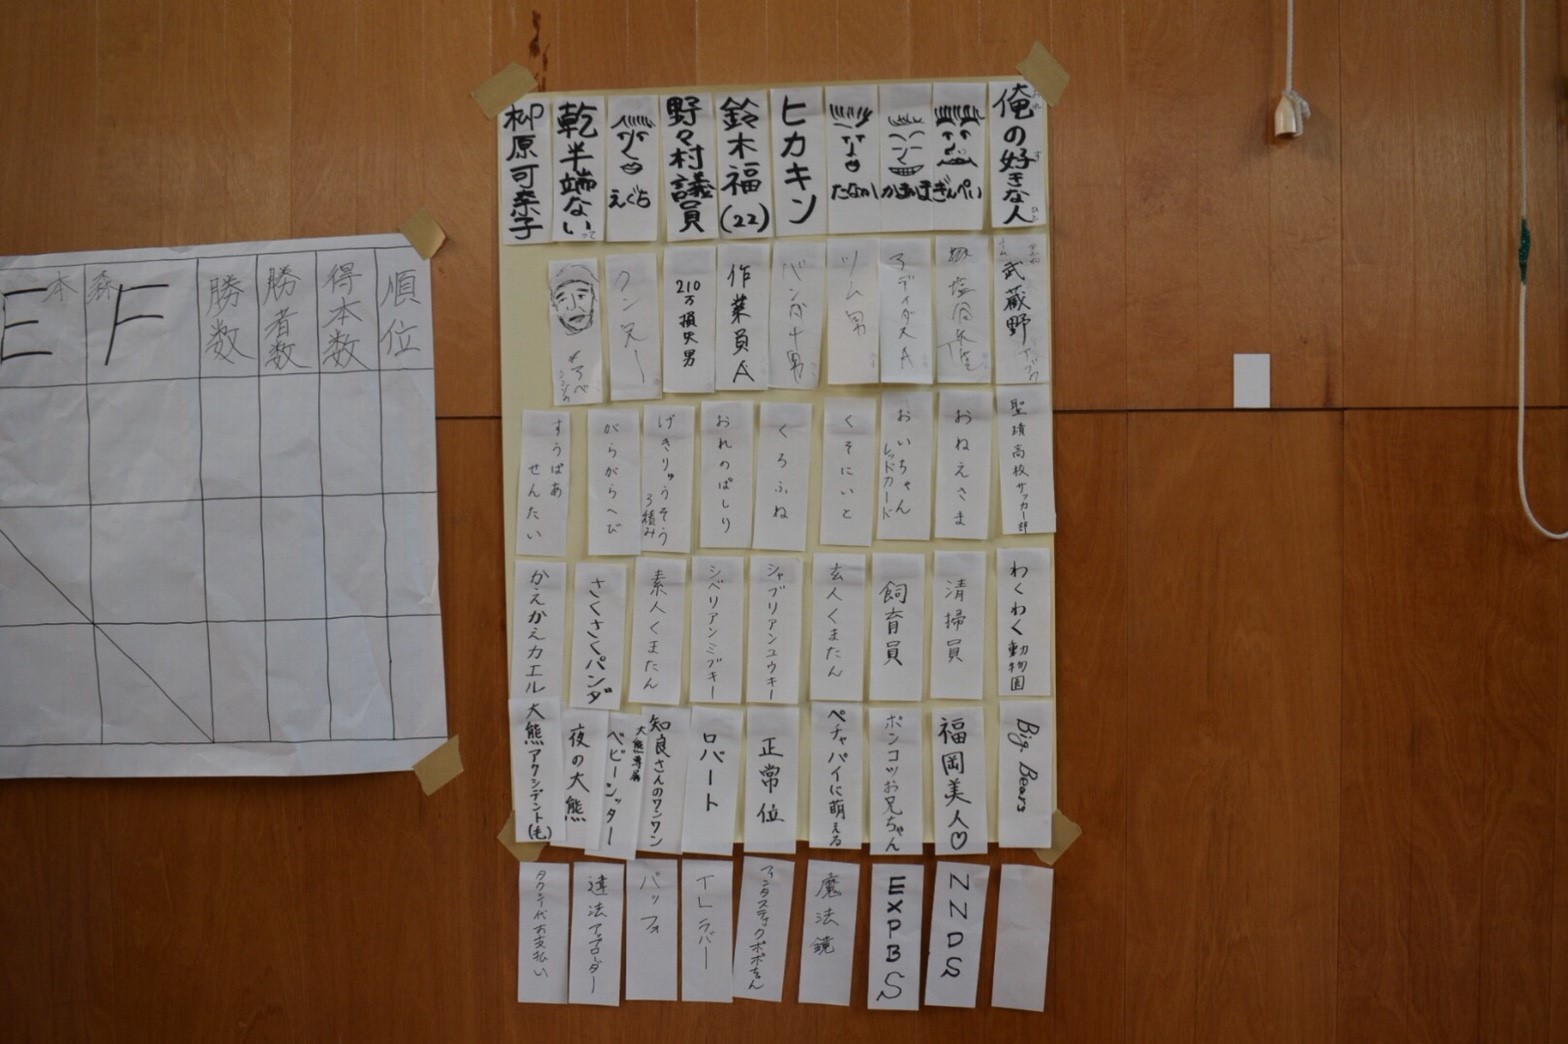 俺の好きな人
ぎんぺい
かまあま
たなかし
ヒカキン
鈴木福(22)
野々村議員
えぐち
乾半端ない
柳原可奈子
武蔵野
アディダスA
ツム男
バンカナ男
作業員A
210万損失男
クン兄ー
聖靖高校サッカー部
おねえさま
おいちゃん
レッドカード
くそにいと
くろふね
おれのぱしり
げきりゅうそう
3積み
がらがらへび
すうぱあ
せんたい
わくわく動物園
清掃員
飼育員
玄人くまたん
シャブリアンユウキー
シベリアンミブキー
素人くまたん
さくさくパンダ
かえかえカエル
Big Bears
福岡美人♡
ポンコツお兄ちゃん
ペチャパイに萌える
正常位
ロバート
知良さんのワンワン
大熊専属
ベビーシッター
夜の大熊
大熊アクシデント(も)
NNDS
EXPBS
魔法鏡
ファンタスティックポポちゃん
TLラバー
バッファ
違法アップローダー
タクシー代お支払い
順位
得本数
勝者数
勝数
F
E